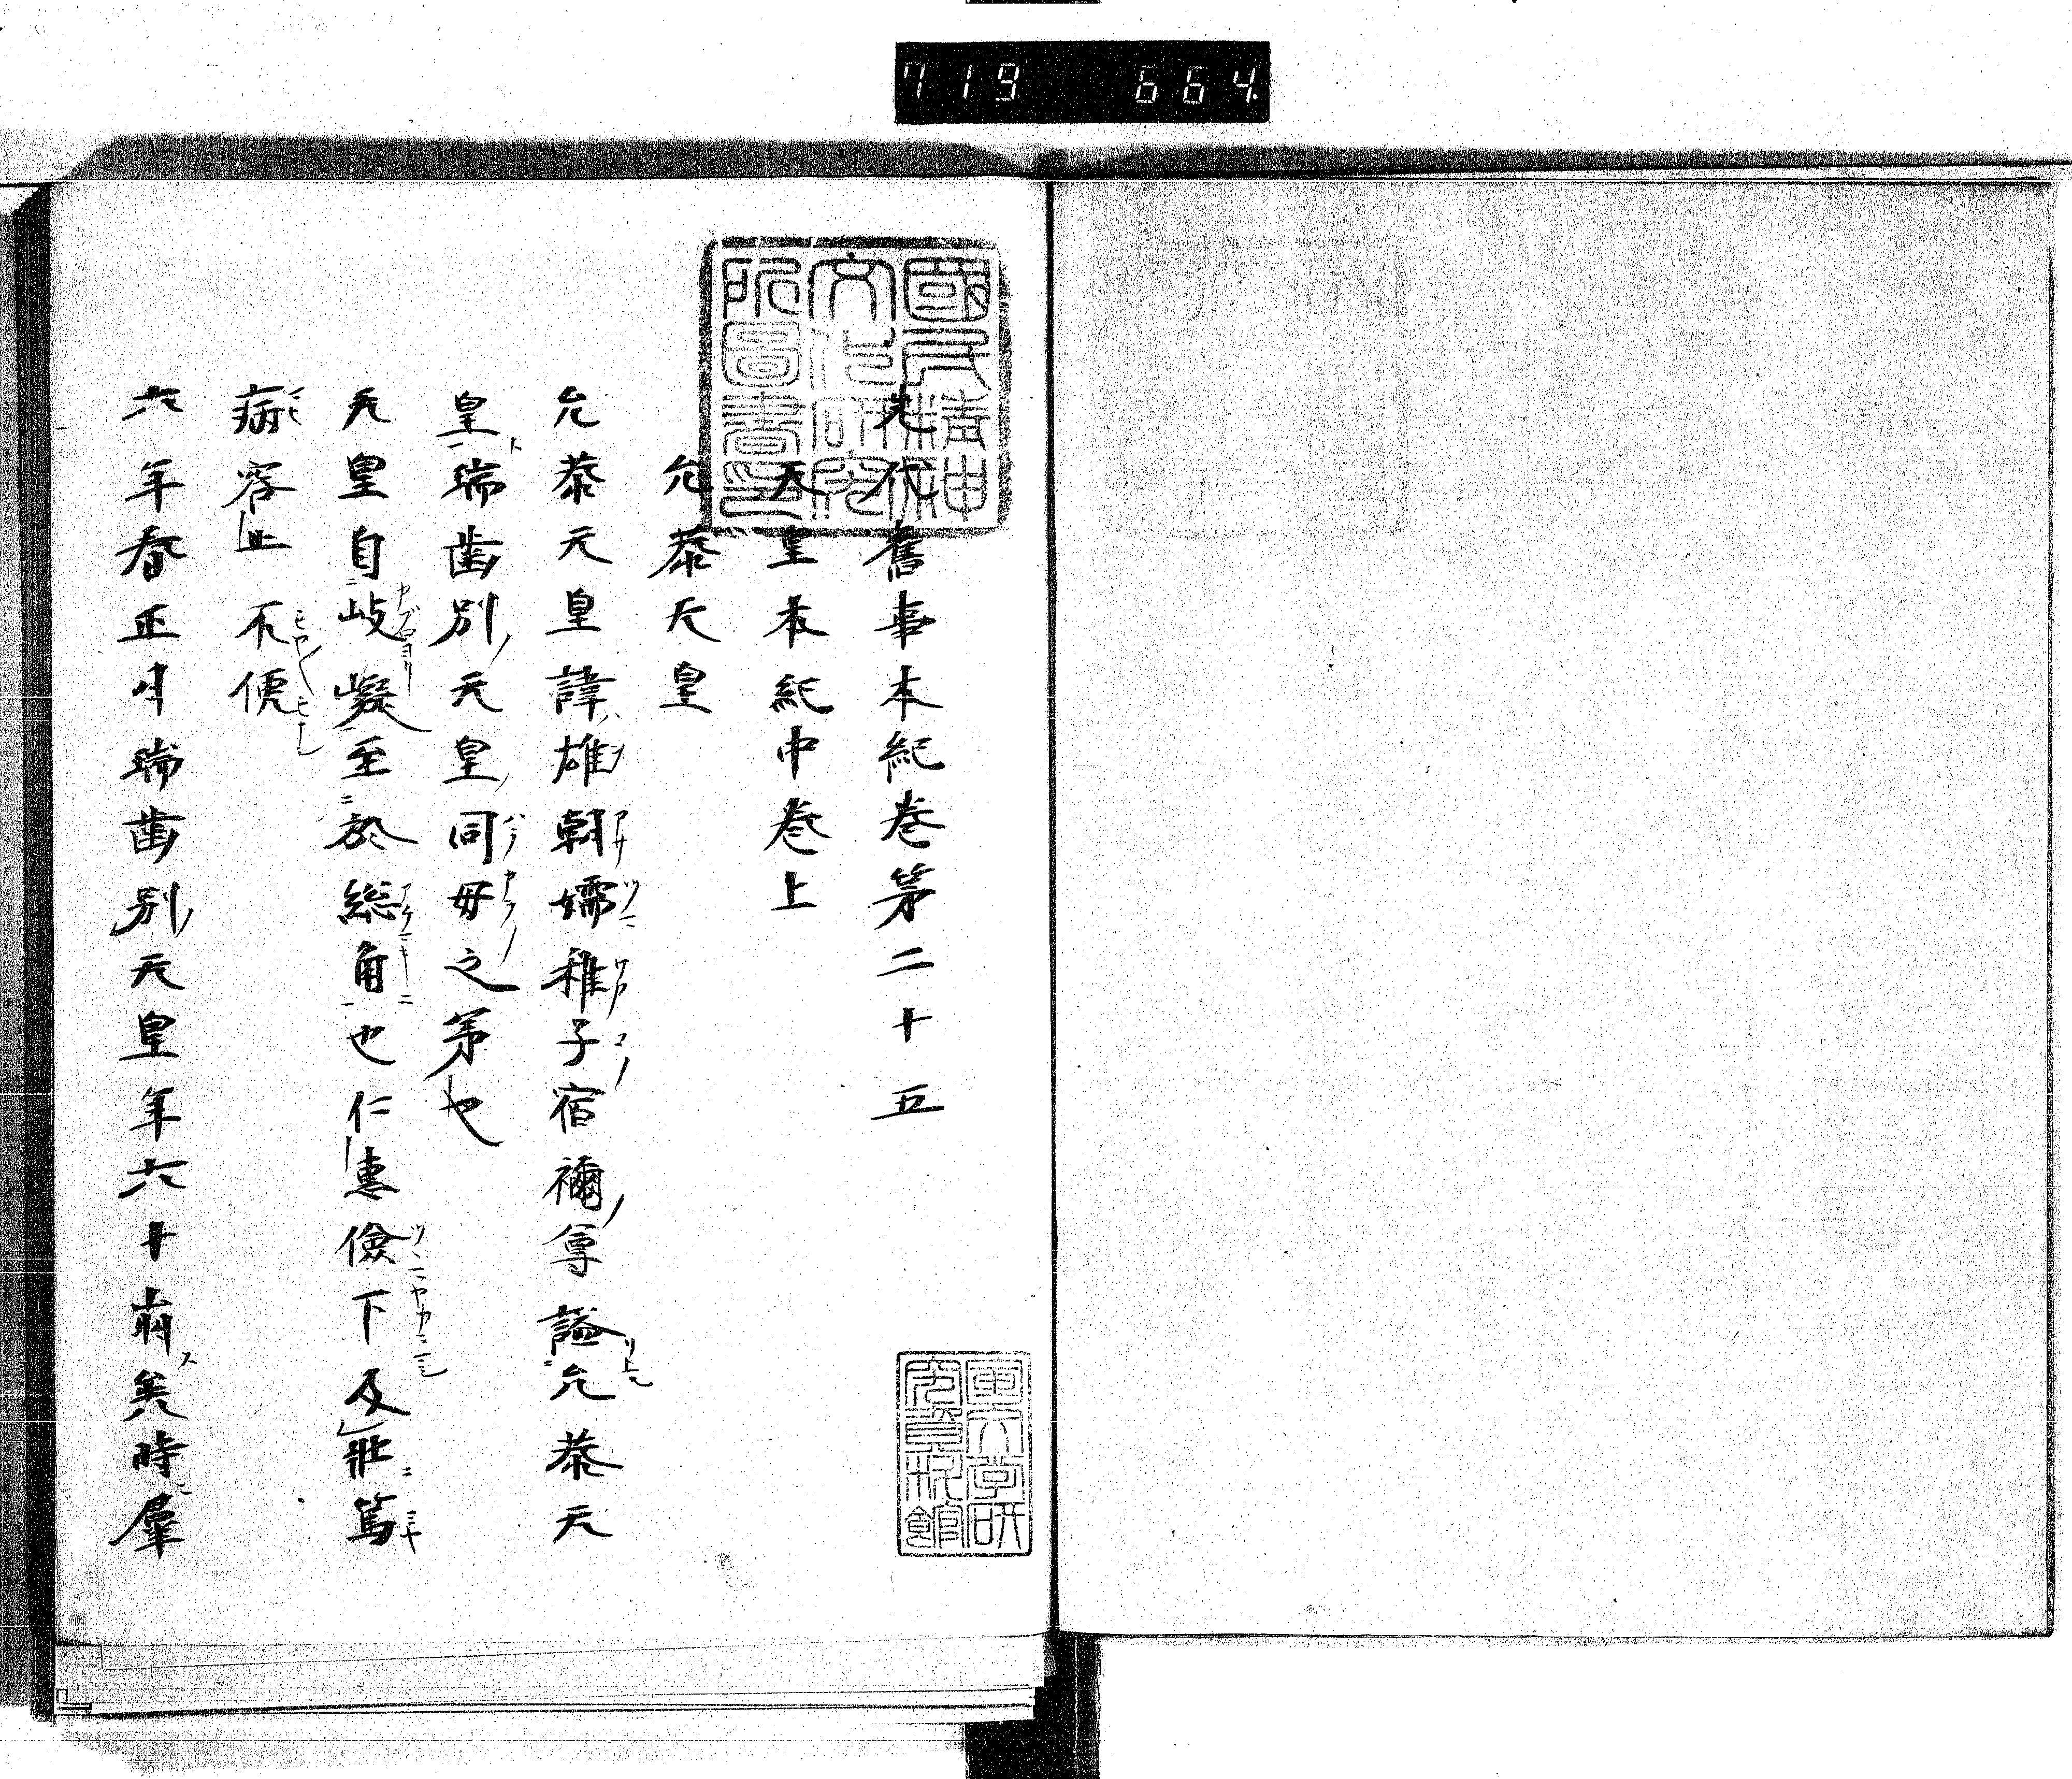 719 664
國民精神
文化研究
所圖書印
先代舊事本紀巻第二十五
天皇本紀中巻上
允恭天皇
允恭天皇諱雄朝嬬稚子宿禰尊謚允恭天
皇瑞歯別天皇同母之弟也
天皇自岐嶷至於総角也仁惠儉下及壯篤
病容止不便
六年春正月瑞歯別天皇年六十崩矣時羣
国文学研
究資料館